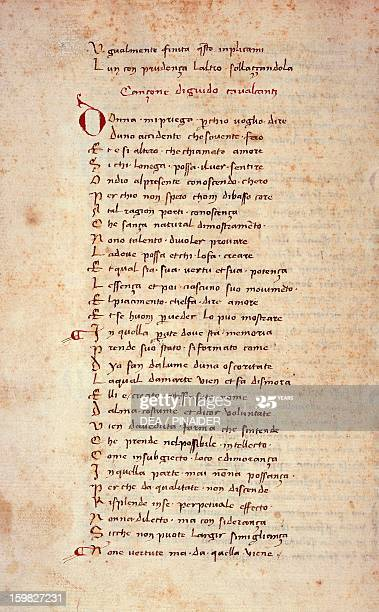 Ugualmente finita qsto inplicami
Lun con prudença laltro sollaççandola
Cançone diguido cavalcanti
Donna · mipriego pchio voglio dire
Duno accidente · che sovente · fero
Et e si altero · che chiamato amore
Si chi lonega · possa · iluer · sentire
Ondio alpresente · conoscendo · chero
Per chio non spero chom dibasso core
A tal ragion porti · conoscença
Che sança natural dimostramēto ·
Nono talento · divoler provare
La dove possa et chi · lofa · creare
Et qual sia · sua · vertu et sua · potença
Lessença et poi · ciascuno suo movimēto ·
El piacimento · chelfa · dire amore
Et se huom p veder · lo puo mostrare
In quella parte dove sta · memoria
Prende suo stato · si formato come
Dya fan dalume · duna oscuritate
Laqual damarte vien et fa dimora
Elli e creato
Dalma · costante et dicor voluntate
Vien daveduta forma che sintende
Che prende nelpossibile · intellecto
Come insubgiecto · loco et dimorança
In quella parte mai nōna possança ·
Per che da qualitate non discende
Risplende inse perpetuale effecto
Nonna dilecto · ma con siderança
Sicche non puote largir simigliança
None vertute ma · da · quella viene ·
gettyimages
DEA / PINAIDER
159827231